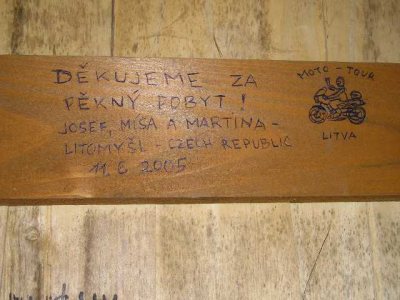 DĚKUJEME ZA
PĚKNÝ POBYT!
JOSEF, MISA A MARTINA -
LITOMYŠL - CZECH REPUBLIC
11. 6 2005
MOTO - TOUR
LITVA